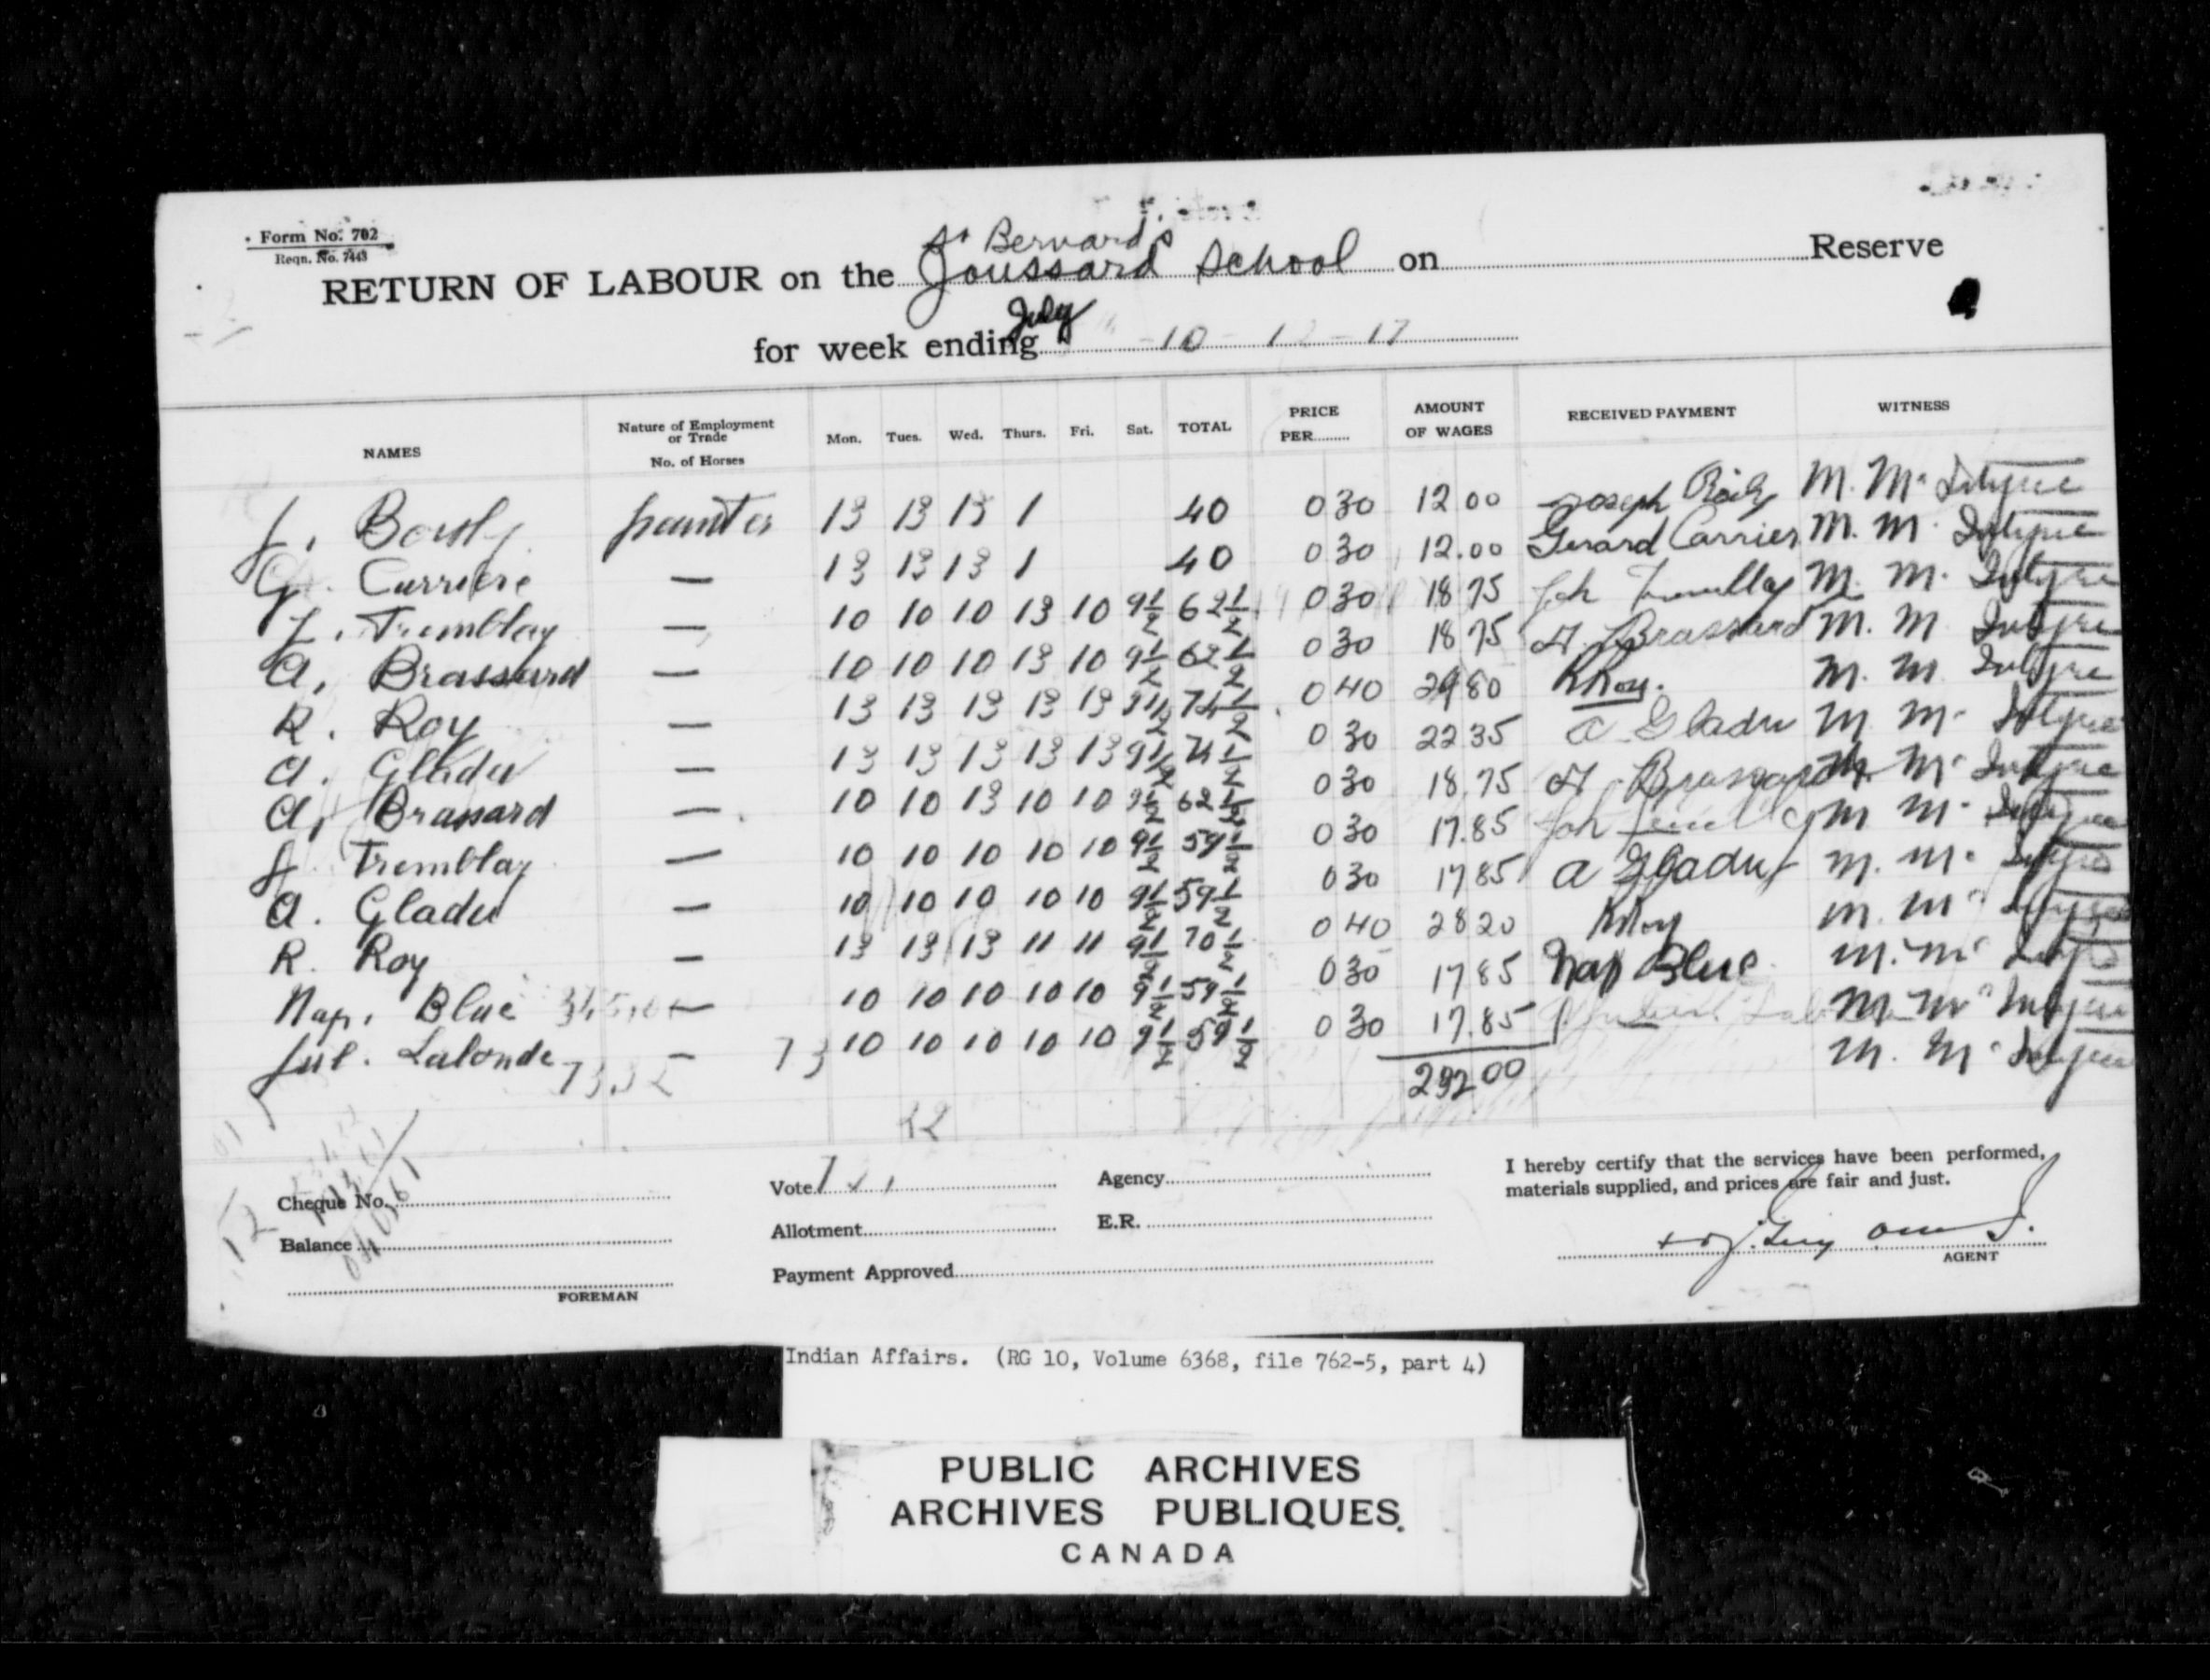 Form No. 702
Reqn. No. 7443
St Bernard's
RETURN OF LABOUR on the Joussard School on Reserve
July
for week ending 10 - 12 - 17
NAMES Nature of Employment or Trade No. of Horses Mon. Tues. Wed. Thurs. Fri. Sat. TOTAL PRICE PER AMOUNT OF WAGES RECEIVED PAYMENT WITNESS
J. painter 13 13 13 1 40 0 30 12 00 Joseph M. Mc Intyre
G. Carriere — 13 13 13 1 40 0 30 12.00 Gerard Carrier M. Mc Intyre
J. Tremblay — 10 10 10 13 10 9 1/2 62 1/2 0 30 18 75 Joh Tremblay M. Mc Intyre
A. Brassard — 10 10 10 13 10 9 1/2 62 1/2 0 30 18 75 A. Brassard M. Mc Intyre
R. Roy — 13 13 13 13 13 9 1/2 74 1/2 0 40 29 80 R Roy. M. Mc Intyre
A. Gladu — 13 13 13 13 13 9 1/2 74 1/2 0 30 22 35 A Gladu M. Mc Intyre
A. Brassard — 10 10 13 10 10 9 1/2 62 1/2 0 30 18.75 A. Brassard M. Mc Intyre
J. Tremblay — 10 10 10 10 10 9 1/2 59 1/2 0 30 17.85 Joh M. Mc Intyre
A. Gladu — 10 10 10 10 10 9 1/2 59 1/2 0 30 17 85 A Gladu M. Mc Intyre
R. Roy — 13 13 13 11 11 9 1/2 70 1/2 0 40 28 20 R Roy M. Mc Intyre
Nap. Blue — 10 10 10 10 10 9 1/2 59 1/2 0 30 17 85 Nap Blue M. Mc Intyre
Jul. Lalonde — 10 10 10 10 10 9 1/2 59 1/2 0 30 17.85 M. Mc Intyre
M. Mc Intyre
232 00
Cheque No. Vote Agency
I hereby certify that the services have been performed,
materials supplied, and prices are fair and just.
Balance Allotment E.R.
Payment Approved
AGENT
FOREMAN
Indian Affairs. (RG 10, Volume 6368, file 762-5, part 4)
PUBLIC ARCHIVES
ARCHIVES PUBLIQUES
CANADA